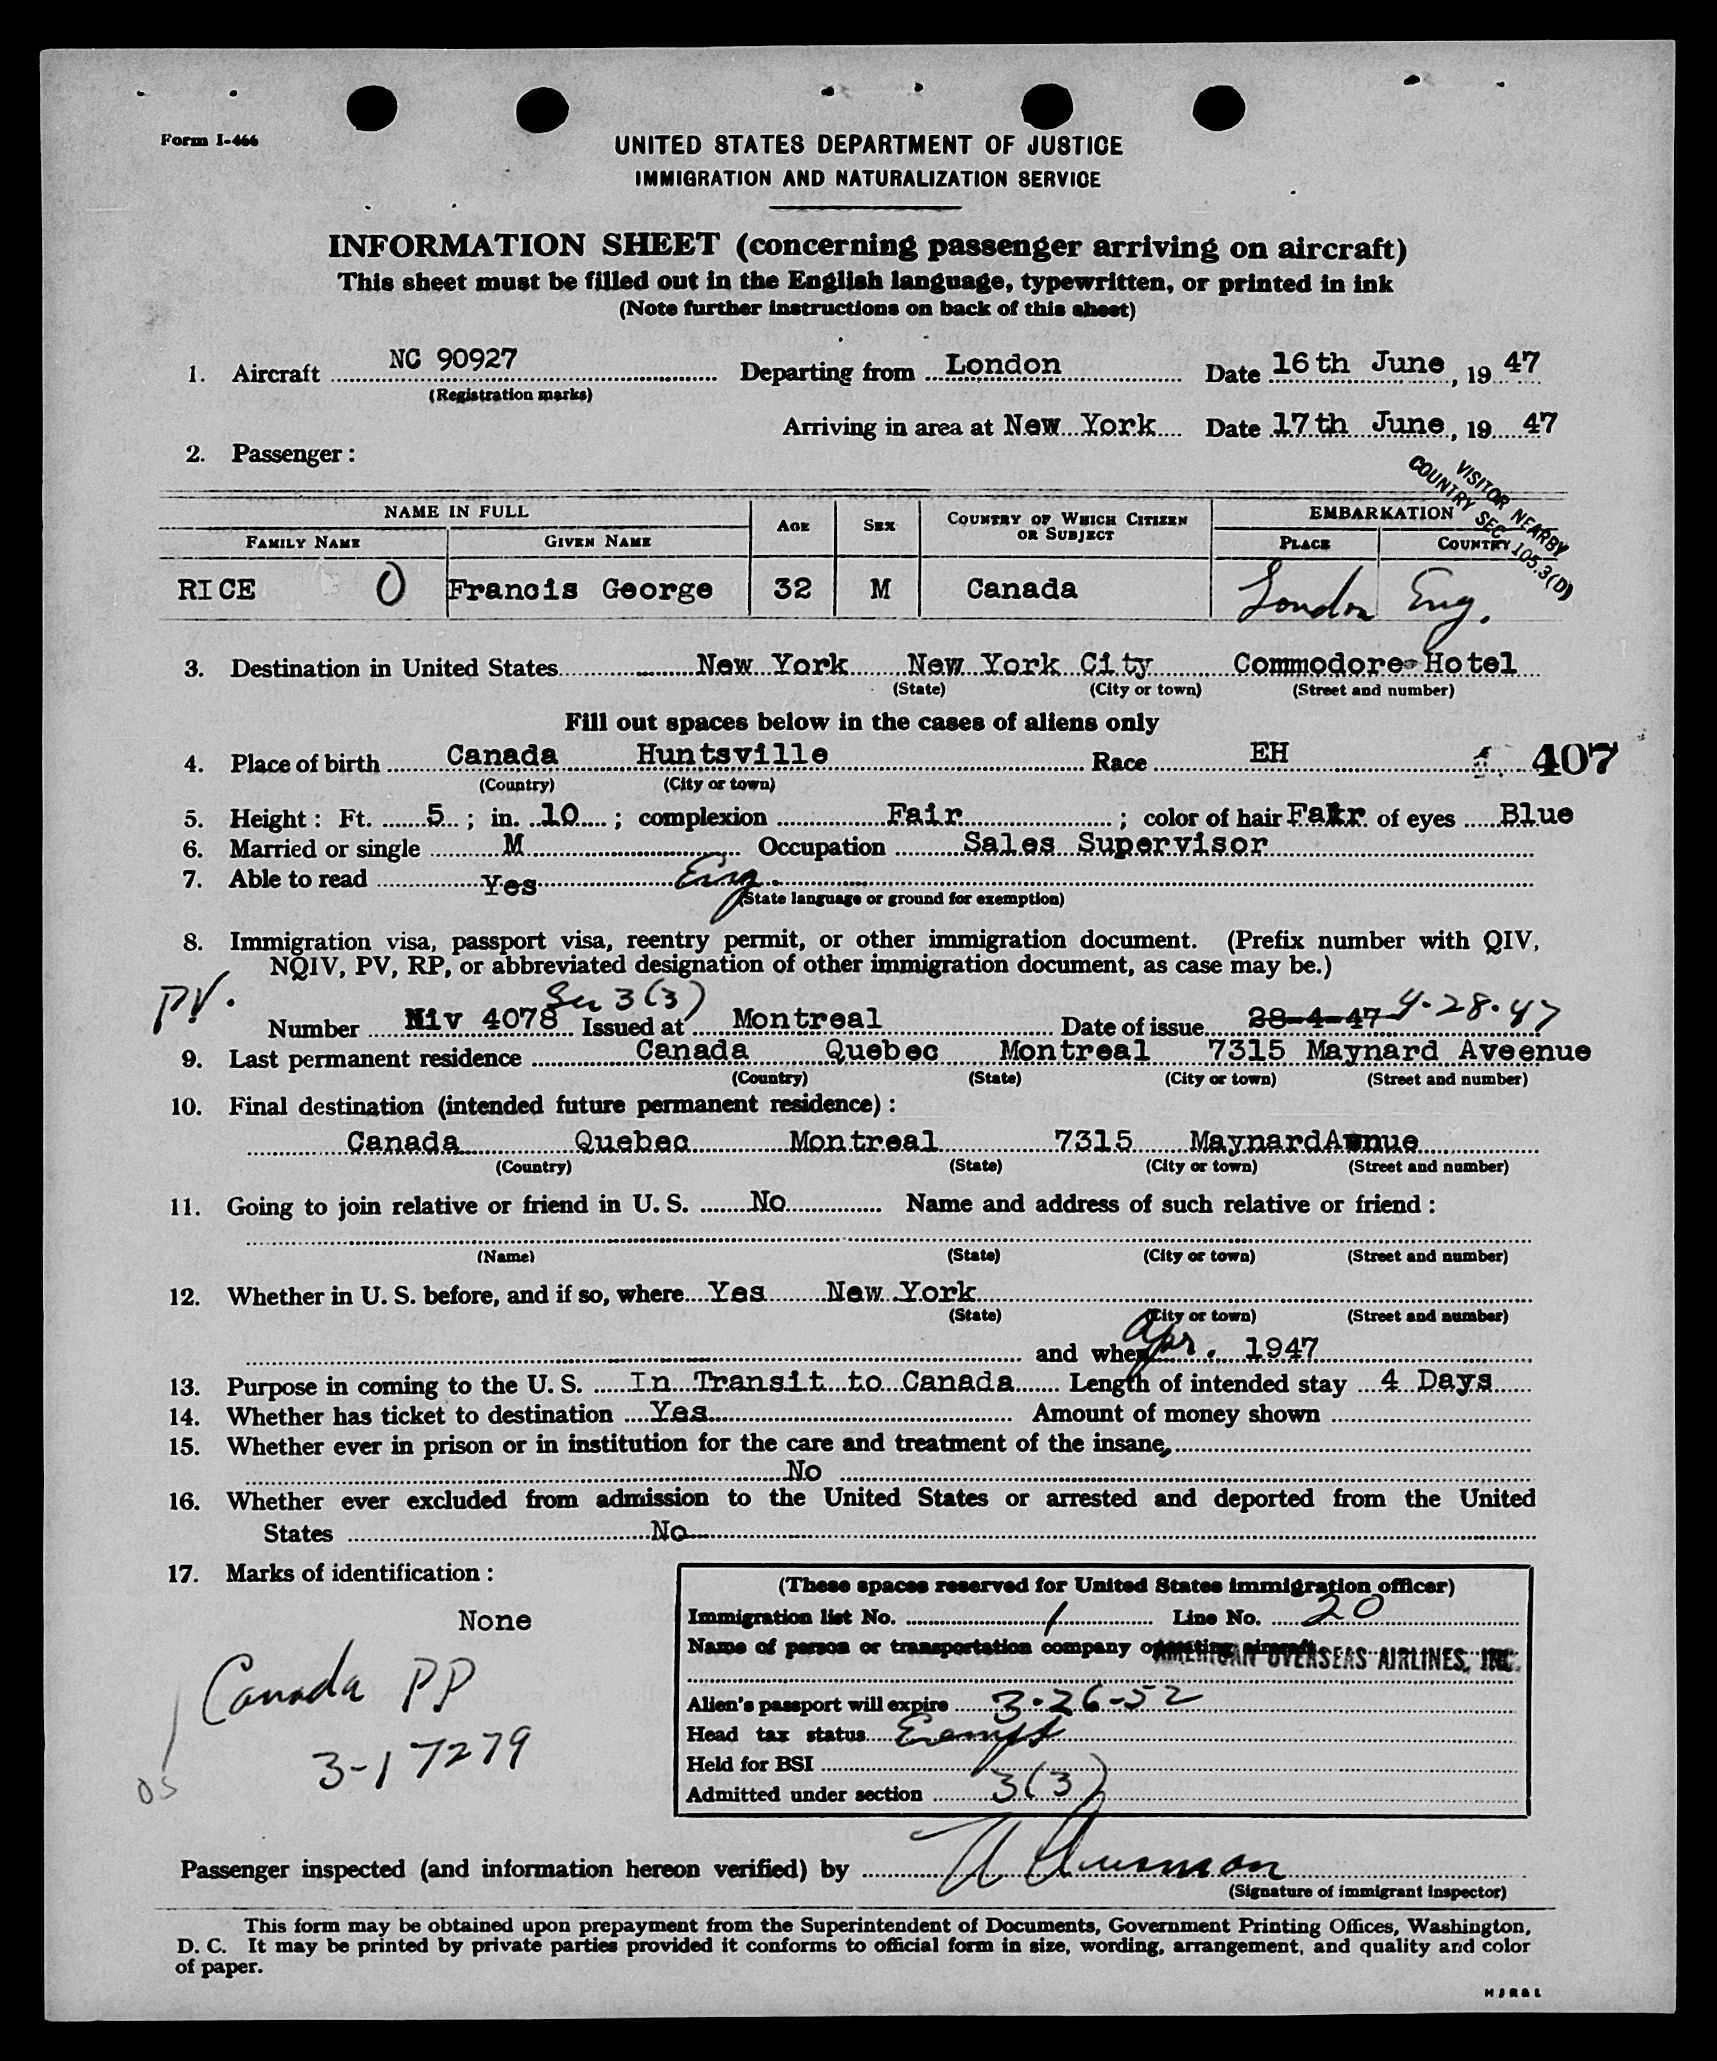 Form I-466
UNITED STATES DEPARTMENT OF JUSTICE
IMMIGRATION AND NATURALIZATION SERVICE
INFORMATION SHEET (concerning passenger arriving on aircraft)
This sheet must be filled out in the English language, typewritten, or printed in ink
(Note further instructions on back of this sheet)
1. Aircraft NC 90927 Departing from London Date 16th June, 19 47
(Registration marks)
Arriving in area at New York Date 17th June, 19 47
2. Passenger:
VISITOR NEARBY
COUNTRY SEC 105.3(D)
NAME IN FULL AGE SEX COUNTRY OF WHICH CITIZEN OR SUBJECT EMBARKATION
FAMILY NAME GIVEN NAME PLACE COUNTRY
RICE O Francis George 32 M Canada London Eng.
3. Destination in United States New York New York City Commodore Hotel
(State) (City or town) (Street and number)
Fill out spaces below in the cases of aliens only
4. Place of birth Canada Huntsville Race EH 407
(Country) (City or town)
5. Height: Ft. 5; in. 10; complexion Fair; color of hair Fair of eyes Blue
6. Married or single M Occupation Sales Supervisor
7. Able to read Yes Eng.
(State language or ground for exemption)
8. Immigration visa, passport visa, reentry permit, or other immigration document. (Prefix number with QIV,
NQIV, PV, RP, or abbreviated designation of other immigration document, as case may be.)
PV. Sec 3(3)
Number Niv 4078 Issued at Montreal Date of issue 28-4-47 4-28-47
9. Last permanent residence Canada Quebec Montreal 7315 Maynard Aveenue
(Country) (State) (City or town) (Street and number)
10. Final destination (intended future permanent residence):
Canada Quebec Montreal 7315 Maynard
(Country) (State) (City or town) (Street and number)
11. Going to join relative or friend in U. S. No Name and address of such relative or friend:
(Name) (State) (City or town) (Street and number)
12. Whether in U. S. before, and if so, where Yes New York
(State) (City or town) (Street and number)
and when Apr. 1947
13. Purpose in coming to the U. S. In Transit to Canada Length of intended stay 4 Days
14. Whether has ticket to destination Yes Amount of money shown
15. Whether ever in prison or in institution for the care and treatment of the insane,
No
16. Whether ever excluded from admission to the United States or arrested and deported from the United
States No
17. Marks of identification:
None
Canada PP
3-17279
OS
(These spaces reserved for United States immigration officer)
Immigration list No. 1 Line No. 20
Name of person or transportation company operating aircraft AMERICAN OVERSEAS AIRLINES, INC.
Alien's passport will expire 3-26-52
Head tax status Exempt
Held for BSI
Admitted under section 3(3)
Passenger inspected (and information hereon verified) by
(Signature of immigrant inspector)
This form may be obtained upon prepayment from the Superintendent of Documents, Government Printing Offices, Washington,
D. C. It may be printed by private parties provided it conforms to official form in size, wording, arrangement, and quality and color
of paper.